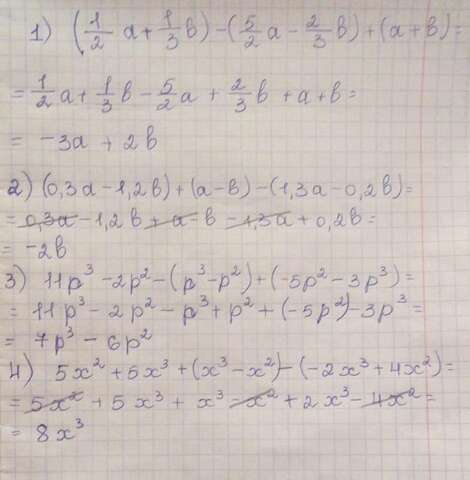 1) (1/2 a + 1/3 в) - (5/2 a - 2/3 в) + (a + в) =
= 1/2 a + 1/3 в - 5/2 a + 2/3 в + a + в =
= -3a + 2в
2) (0,3a - 1,2в) + (a - в) - (1,3a - 0,2в) =
= 0,3a - 1,2в + a - в - 1,3a + 0,2в =
= -2в
3) 11p³ - 2p² - (p³ - p²) + (-5p² - 3p³) =
= 11p³ - 2p² - p³ + p² + (-5p²) - 3p³ =
= 7p³ - 6p²
4) 5x² + 5x³ + (x³ - x²) - (-2x³ + 4x²) =
= 5x² + 5x³ + x³ - x² + 2x³ - 4x² =
= 8x³